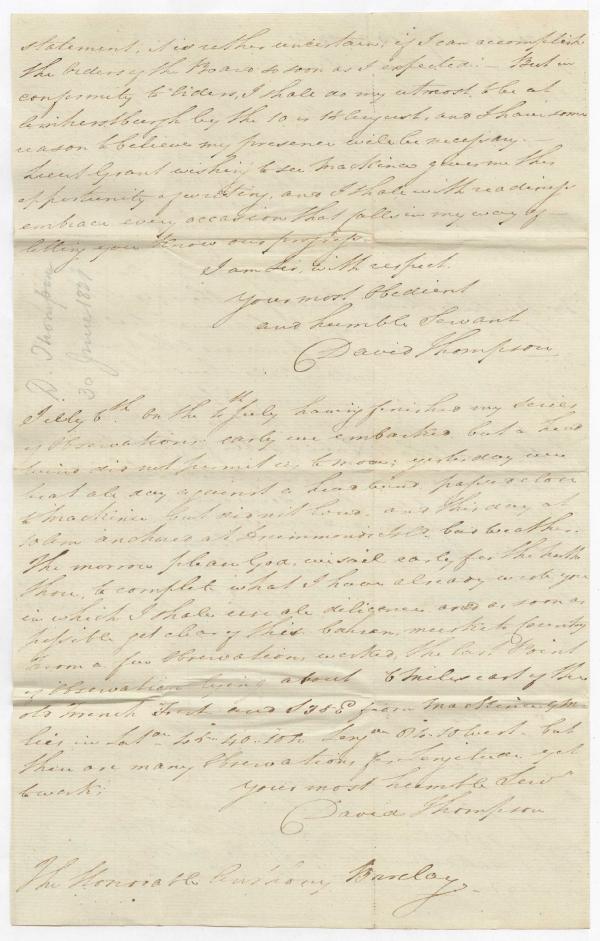 statement, it is rather uncertain, if I can accomplish
the Orders of the Board so soon as I expected: — But in
conformity to Orders, I shall do my utmost to be at
Amherstburgh by the 10 or 15 August, and I have some
reason to believe my presence will be necessary. —
Lieut Grant wishing to see Mackinac gives me this
opportunity of writing, and I shall with readiness
embrace every occasion that falls in my way of —
letting you know our progress.
I am Sir, with respect
Your most Obedient
and humble Servant
David Thompson
D. Thompson
30 June 1821
July 6th. On the 4th July having finished my series
of Observations early we embarked but a head
wind did not permit us to move; yesterday we
beat all day against a head wind, passed close
to Mackinac but did not land, and this day at
10 am anchored at Drummond's Isld. bad weather.
The morrow please God, we sail early for the
to complete what I have already wrote you
in which I shall use all diligence and as soon as
possible get clear of this barren, musketo Country
From a few Observations worked, the last Point
of Observation being about 6 Miles east of the
old French Fort and S 38 E from Mackinac
lies in Latn 45. 40. 10 N Longn 84. 10 West. but
there are many Observations for Longitude yet
to work;
Your most humble Servt
David Thompson
The Honorable Anthony Barclay